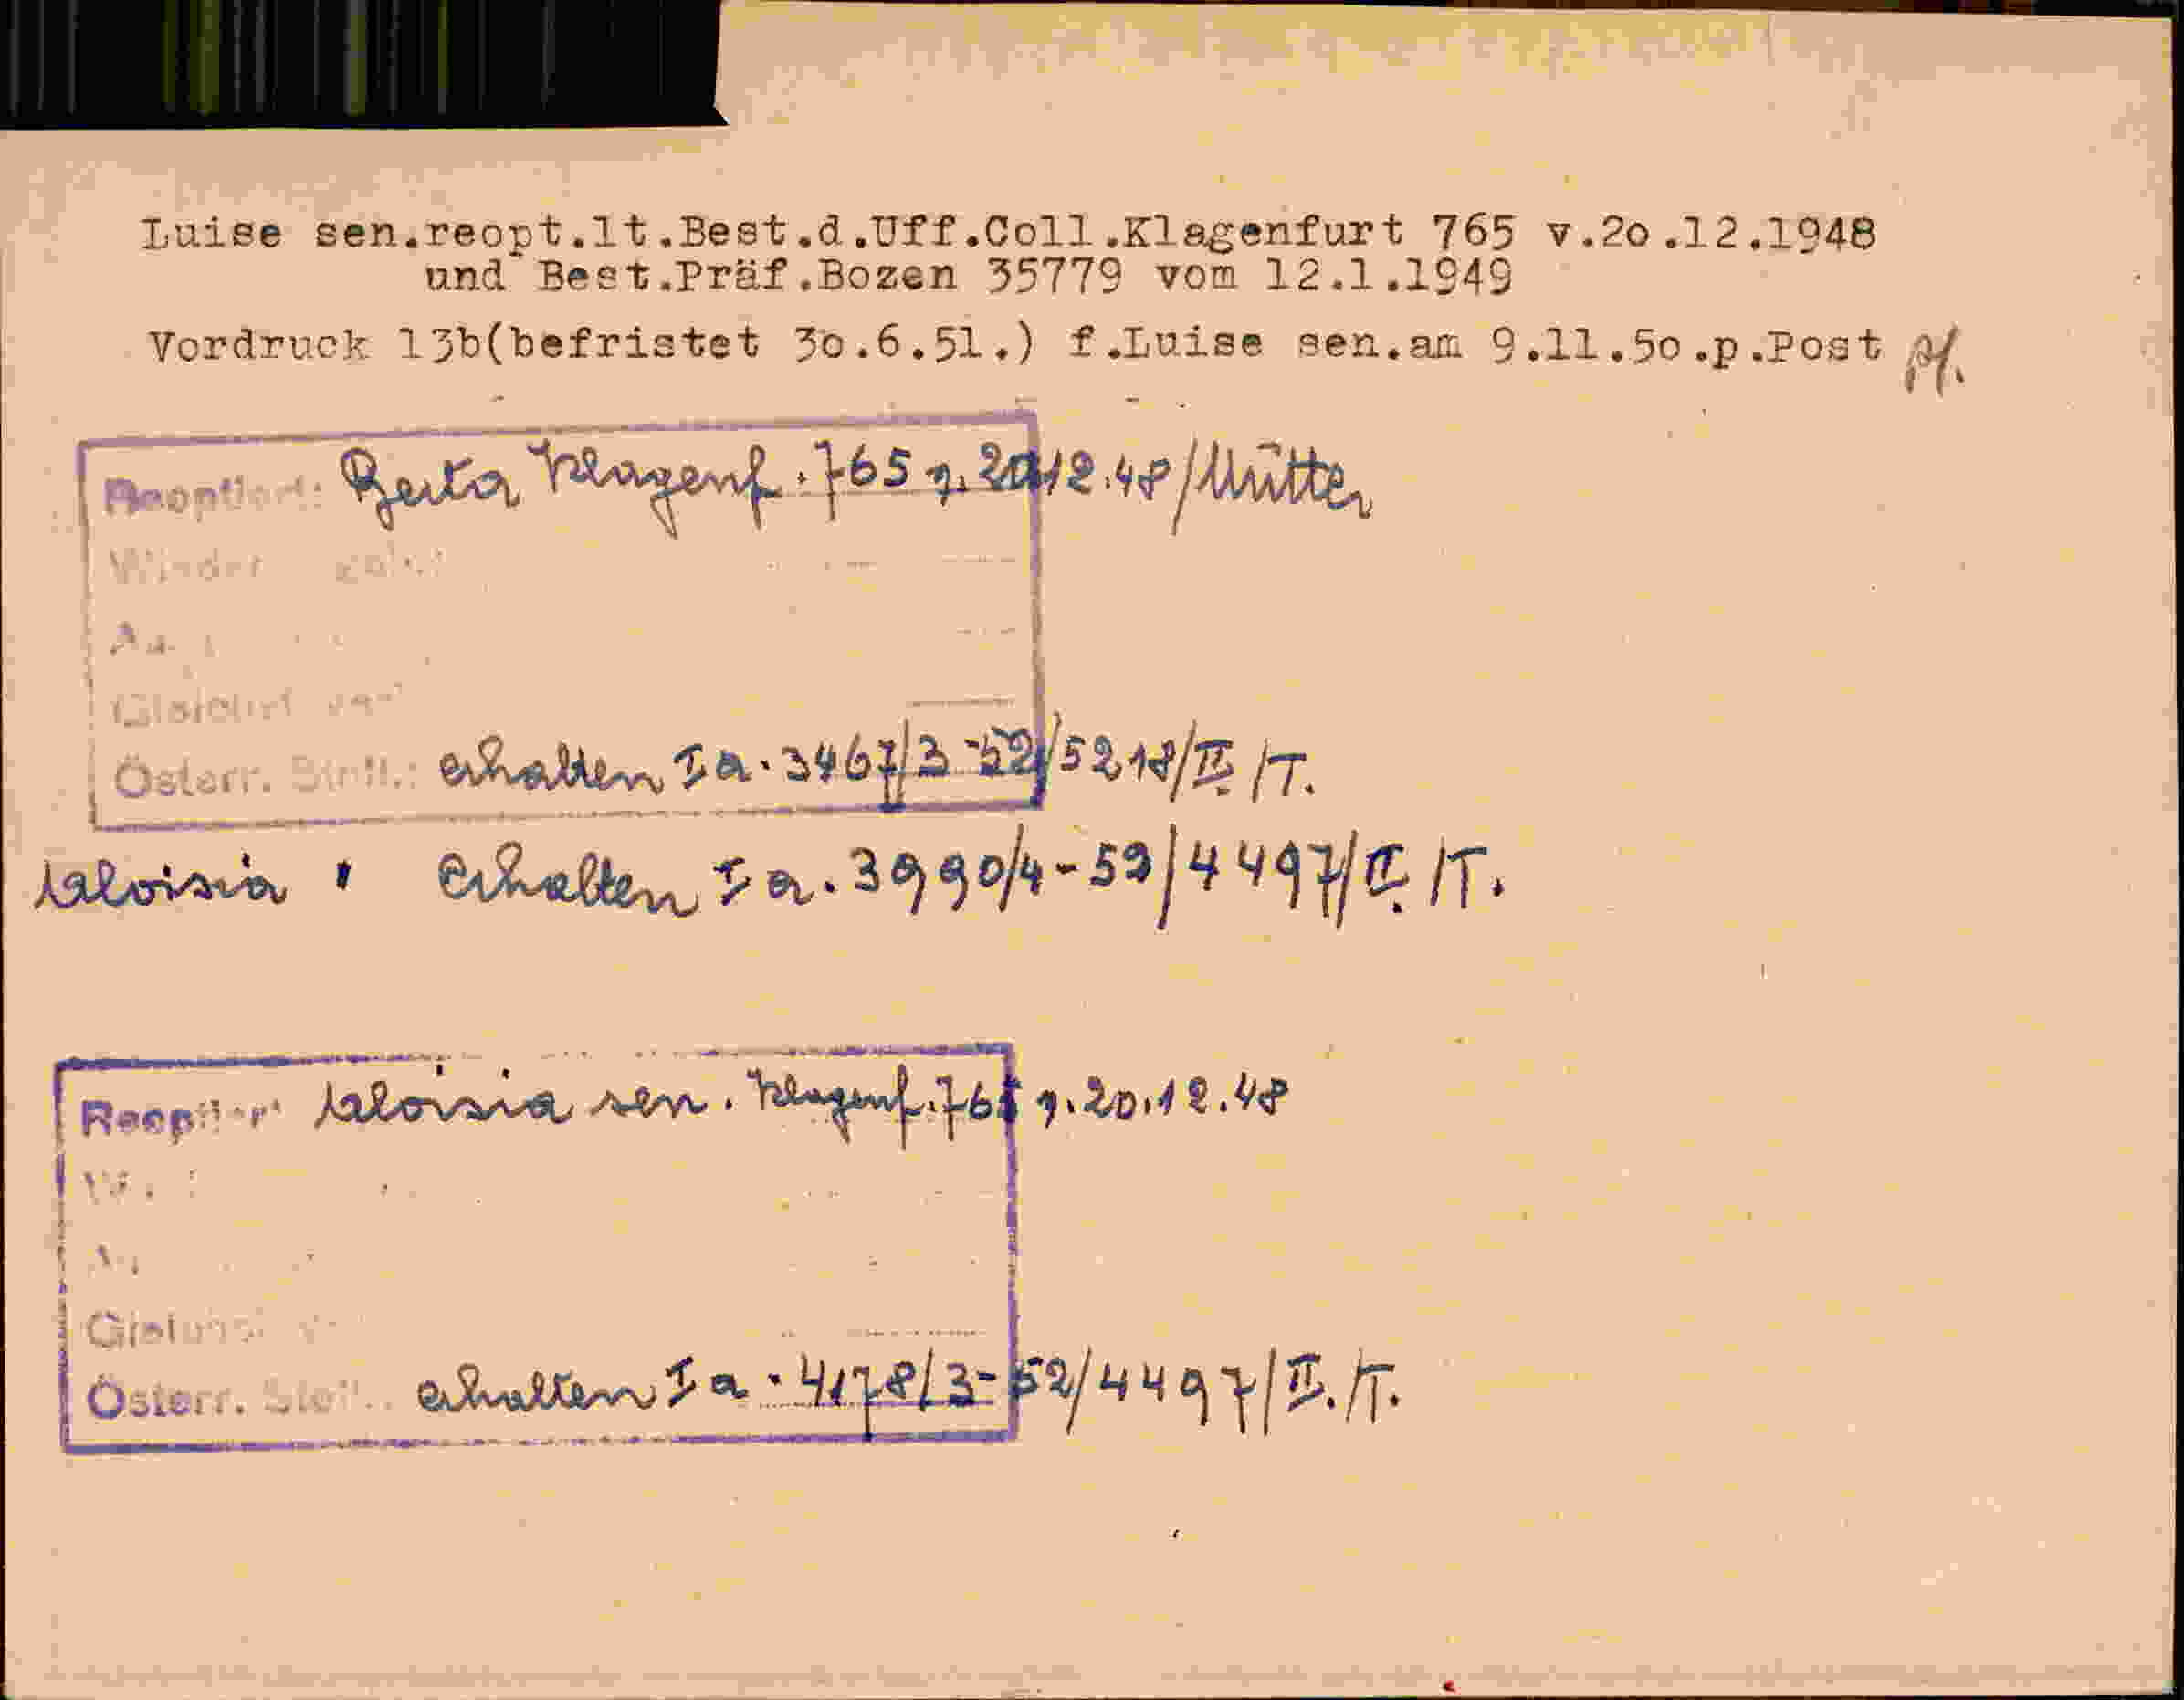 Luise sen.reopt.lt.Best.d.Uff.Coll.Klagenfurt 765 v.2o.12.1948
und Best.Präf.Bozen 35779 vom 12.1.1949
Vordruck 13b(befristet 3o.6.51.) f.Luise sen.am 9.11.5o.p.Post
Reoptiert: Klagenf. 765 v. 20.12.48/Mutter
Österr. erhalten I a. 3467/3-52/5218/II./T.
Aloisia : erhalten I a. 3990/4-53/4497/II./T.
Reoptiert Aloisia sen. Klagenf. 765 v. 20.12.48
Österr. erhalten I a. 4178/3-52/4497/II./T.